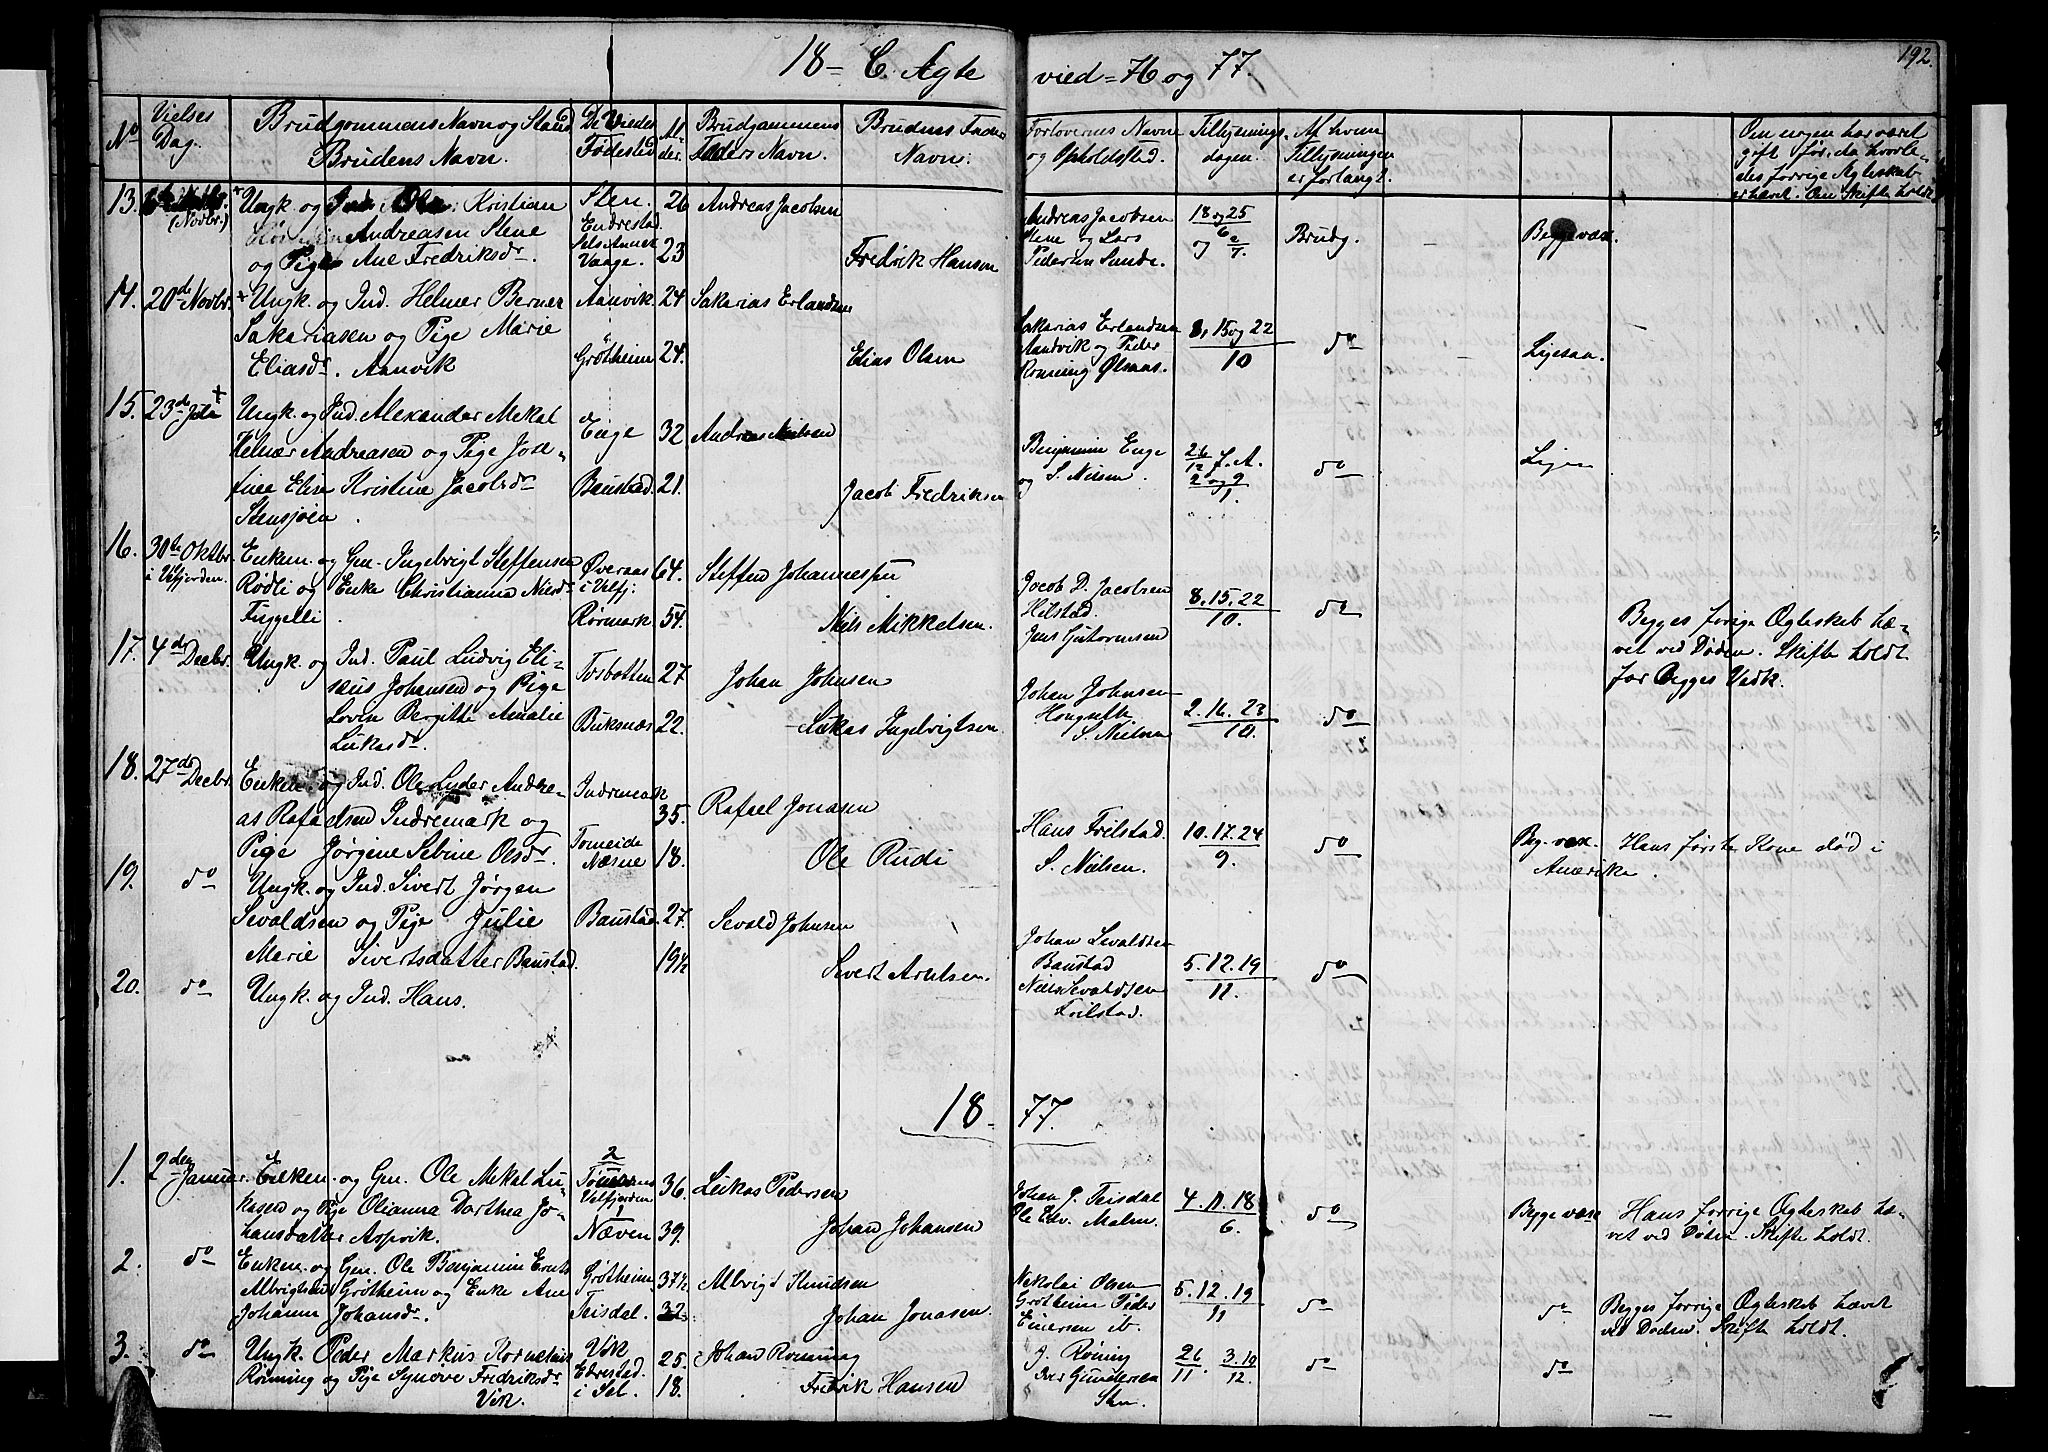 192.
18 = C. Ægte
vied = 76 og 77.
No
Vielses Dag.
Brudgommens Navn og Stand
Brudens Navn.
De Viedes Fødested
Al-
der.
Brudgommens
Faders Navn.
Brudens Faders
Navn.
Forlovernes Navn
og Opholdssted.
Tillysnings-
dagen.
Af hvem
Tillysningen
er forlangt.
Om nogen har været
gift før, da hvorle-
des forrige Ægteskab
er hævet. Om Skifte holdt
13.
(Novbr.)
Ungk. og Ind. Ole Kristian
Andreasen Stene
og Pige Ane Fredriksdr.
Sten.
Endrestad
Sels Annex
Vaage.
26
23
Andreas Jacobsen
Fredrik Hansen
Andreas Jacobsen
Stene og Lars
Pedersen Sunde.
18 og 25
6
Brudg.
Begge vax.
14. 20de Novbr.
Ungk. og Ind. Helmer Berner
Sakariasen og Pige Marie
Eliasdr. Aanvik
Aanvik
Grøtheim
24
24.
Sakarias Erlandsen
Elias Olsen
Sakarias Erlandsen
Aandvik og Peder
Ronning Ølsaas.
8, 15 og 22
10
do
Ligesaa.
15. 23de
Ungk. og Ind. Alexander Mekal
Helmer Andreasen og Pige Jose-
fine Elise Kristine Jacobsdr
Stensjøen.
Enge
Baustad.
32
21.
Andreas Nielsen
Jacob Fredriksen
Benjamin Enge
og S. Nielsen.
26
12 f. A.
2 og 9
1.
do
16. 30te Oktbr.
i Velfjorden.
Enkem. og Gm. Ingebrigt Steffensen
Rødli og Enke Christianna Nielsdr
Fuggelli.
Øveraas
i Velfj:
Rørmark
64.
54.
Steffen Johannessen
Niels Mikkelsen.
Jacob D. Jacobsen
Hilstad.
Jens Gutormsen
8. 15. 22
10.
do
Begges forrige Ægteskab hæ-
vet ved Døden. Skifte holdt
for Begges Vedk.
17. 4de Decbr.
Ungk. og Ind. Paul Ludvig Eli-
sæus Johansen og Pige
Lovise Bergitte Amalie
Lukasdr.
Torbotten
Buksnæs
27
22.
Johan Johnsen
Lukas Ingebrigtsen
Johan Johnsen
S. Nielsen
2. 16. 23
10.
do
18. 27de Decbr.
Enkem. og Ind. Ole Lyder Andre-
as Rafaelsen Indremark og
Pige Jørgine Sebine Olsdr.
Indremark
Tomeide
Næsne
35.
18.
Rafael Jonasen
Ole Rudi
Hans Frilstad.
S. Nielsen.
10. 17. 24
9.
do
Beg. vax.
Hans første Kone død i
Amerika.
19. do
Ungk. og Ind. Sivert Jørgen
Sevaldsen og Pige Julie
Marie Sivertsdatter Baustad.
Baustad.
27.
19½
Sevald Johnsen
Sivert Arntsen.
Johan Sevaldsen
Baustad
Niels Sevaldsen
Frilstad.
5. 12. 19
11.
do
20. do
Ungk. og Ind. Hans.
18 77.
1. 2den Januar.
Enkem. og Gm. Ole Mekal Lu-
kasen og Pige Olianna Dorthea Jo-
hansdatter Aspvik.
2
Velfjorden
1
Næven
36.
39.
Leukas Pedersen
Johan Johansen
Johan J. Teisdal
Ole Edv. Malm.
4. 11. 18
6.
do
Begge vax
Hans forrige Ægteskab hæ-
vet ved Døden. Skifte holdt.
2. do
Enkem. og Gm. Ole Benjamin Ernts
Albrigtsen Grøtheim og Enke Ane
Johanna Johansdr.
Grøtheim
Teisdal.
37½
32
Albrigt Knudsen
Johan Jonasen.
Nikolai Olsen
Grøtheim Peder
Einersen ib.
5. 12. 19
11
do
do
Begges forrige Ægteskab hævet
ved Døden. Skifte holdt.
3. do
Ungk. Peder Markus Kornelius
Rönning og Pige Synove Fredriksdr.
Vik.
Vik
Edrestad.
i Sel.
25.
18.
Johan Rönning
Fredrik Hansen
J. Röning
Iver Gundersen
Sten.
26
11
3. 10
12.
do
do